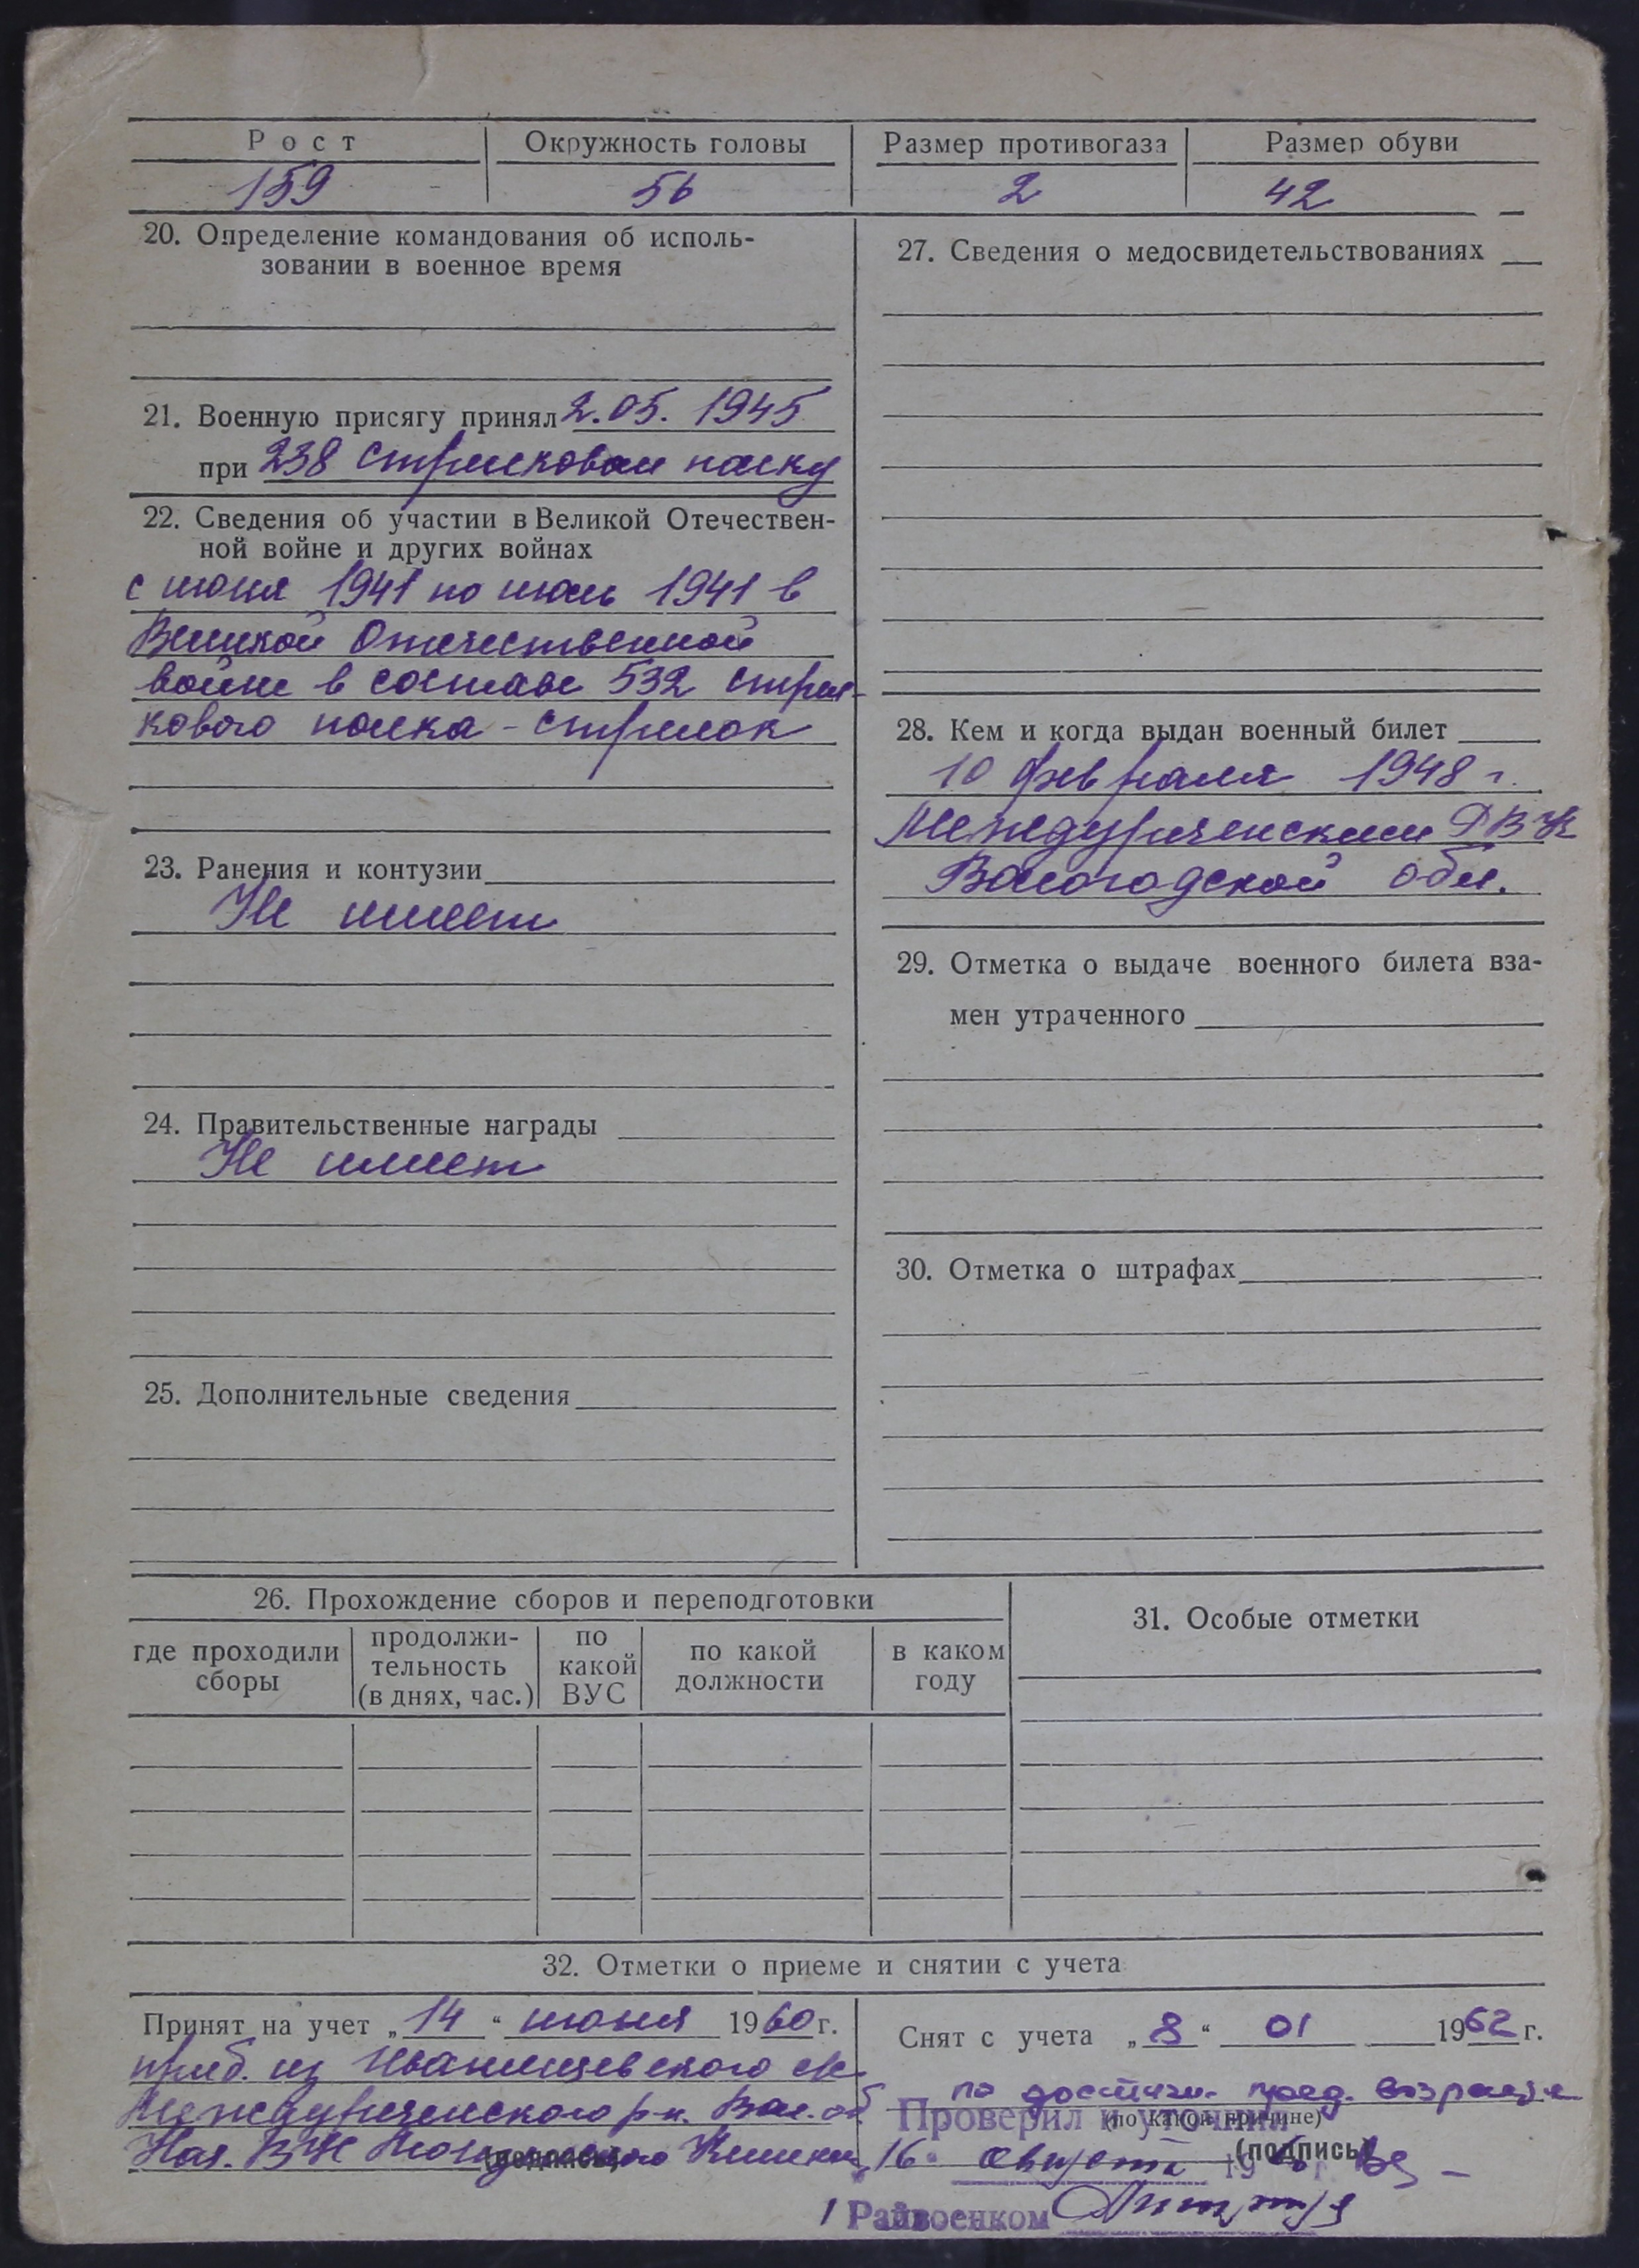 Рост Окружность головы Размер противогаза Размер обуви
159 56 2 42
20. Определение командования об исполь-
зовании в военное время
21. Военную присягу принял 2.05. 1945
при 238 стрелковом полку
22. Сведения об участии в Великой Отечествен-
ной войне и других войнах
с июня 1941 по июль 1941 в
Великой Отечественной
войне в составе 532 стрел-
кового полка - стрелок
23. Ранения и контузии
Не имеет
24. Правительственные награды
Не имеет
25. Дополнительные сведения
27. Сведения о медосвидетельствованиях
28. Кем и когда выдан военный билет
10 февраля 1948 г.
Междуреченским РВК
Вологодской обл.
29. Отметка о выдаче военного билета вза-
мен утраченного
30. Отметка о штрафах
26. Прохождение сборов и переподготовки
где проходили сборы
продолжи-
тельность
(в днях, час.)
по какой ВУС
по какой должности
в каком году
31. Особые отметки
32. Отметки о приеме и снятии с учета
Принят на учет „14“ июня 1960 г.
приб. из Иванищевского с/с
Междуреченского р-н. Вол. об
Нач. ВУС
(подпись)
Снят с учета „8“ 01 1962 г.
по достиж. пред. возраста
(по какой причине)
Проверил и уточнил
(подпись)
„16“ августа 196 г.
Райвоенком